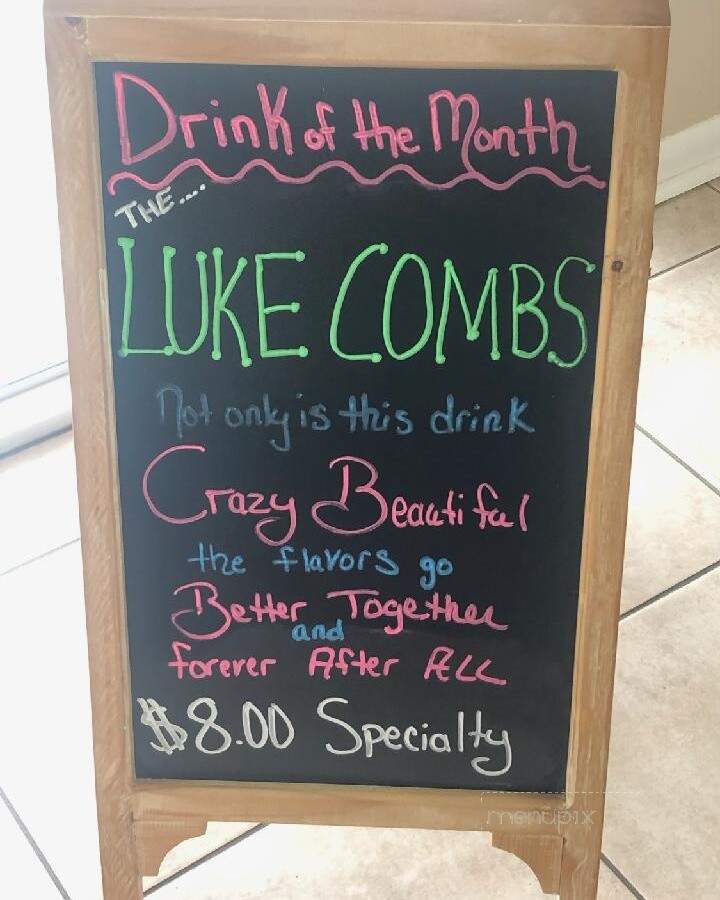 Drink of the Month
THE....
LUKE COMBS
Not only is this drink
Crazy Beautiful
the flavors go
Better Together
and
forever After ALL
$8.00 Specialty
menupix